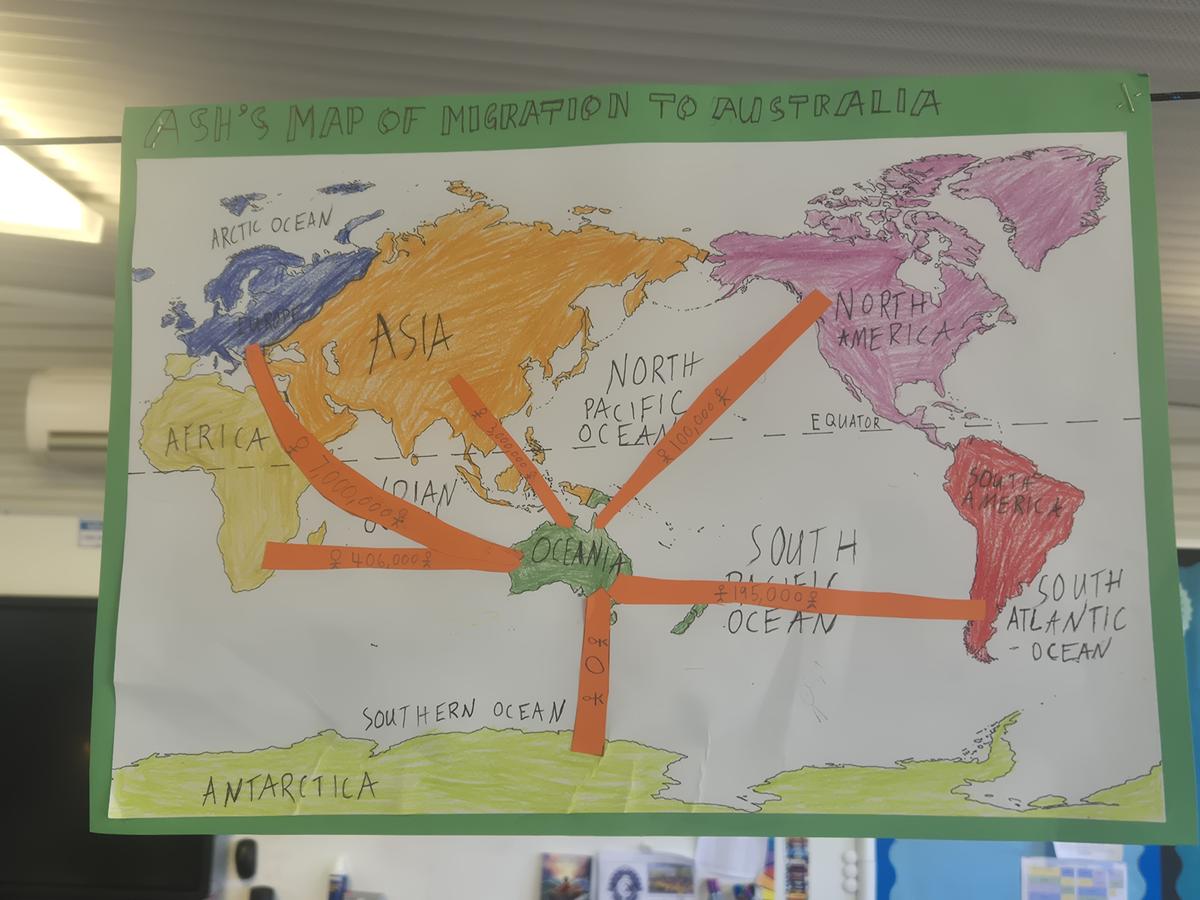 ASH'S MAP OF MIGRATION TO AUSTRALIA
ARCTIC OCEAN
EUROPE
ASIA
NORTH
AMERICA
NORTH
PACIFIC
OCEAN
EQUATOR
AFRICA
3,000,000
100,000
7,000,000
SOUTH
AMERICA
OCEANIA
406,000
SOUTH
PACIFIC
OCEAN
195,000
SOUTH
ATLANTIC
- OCEAN
0
SOUTHERN OCEAN
ANTARCTICA